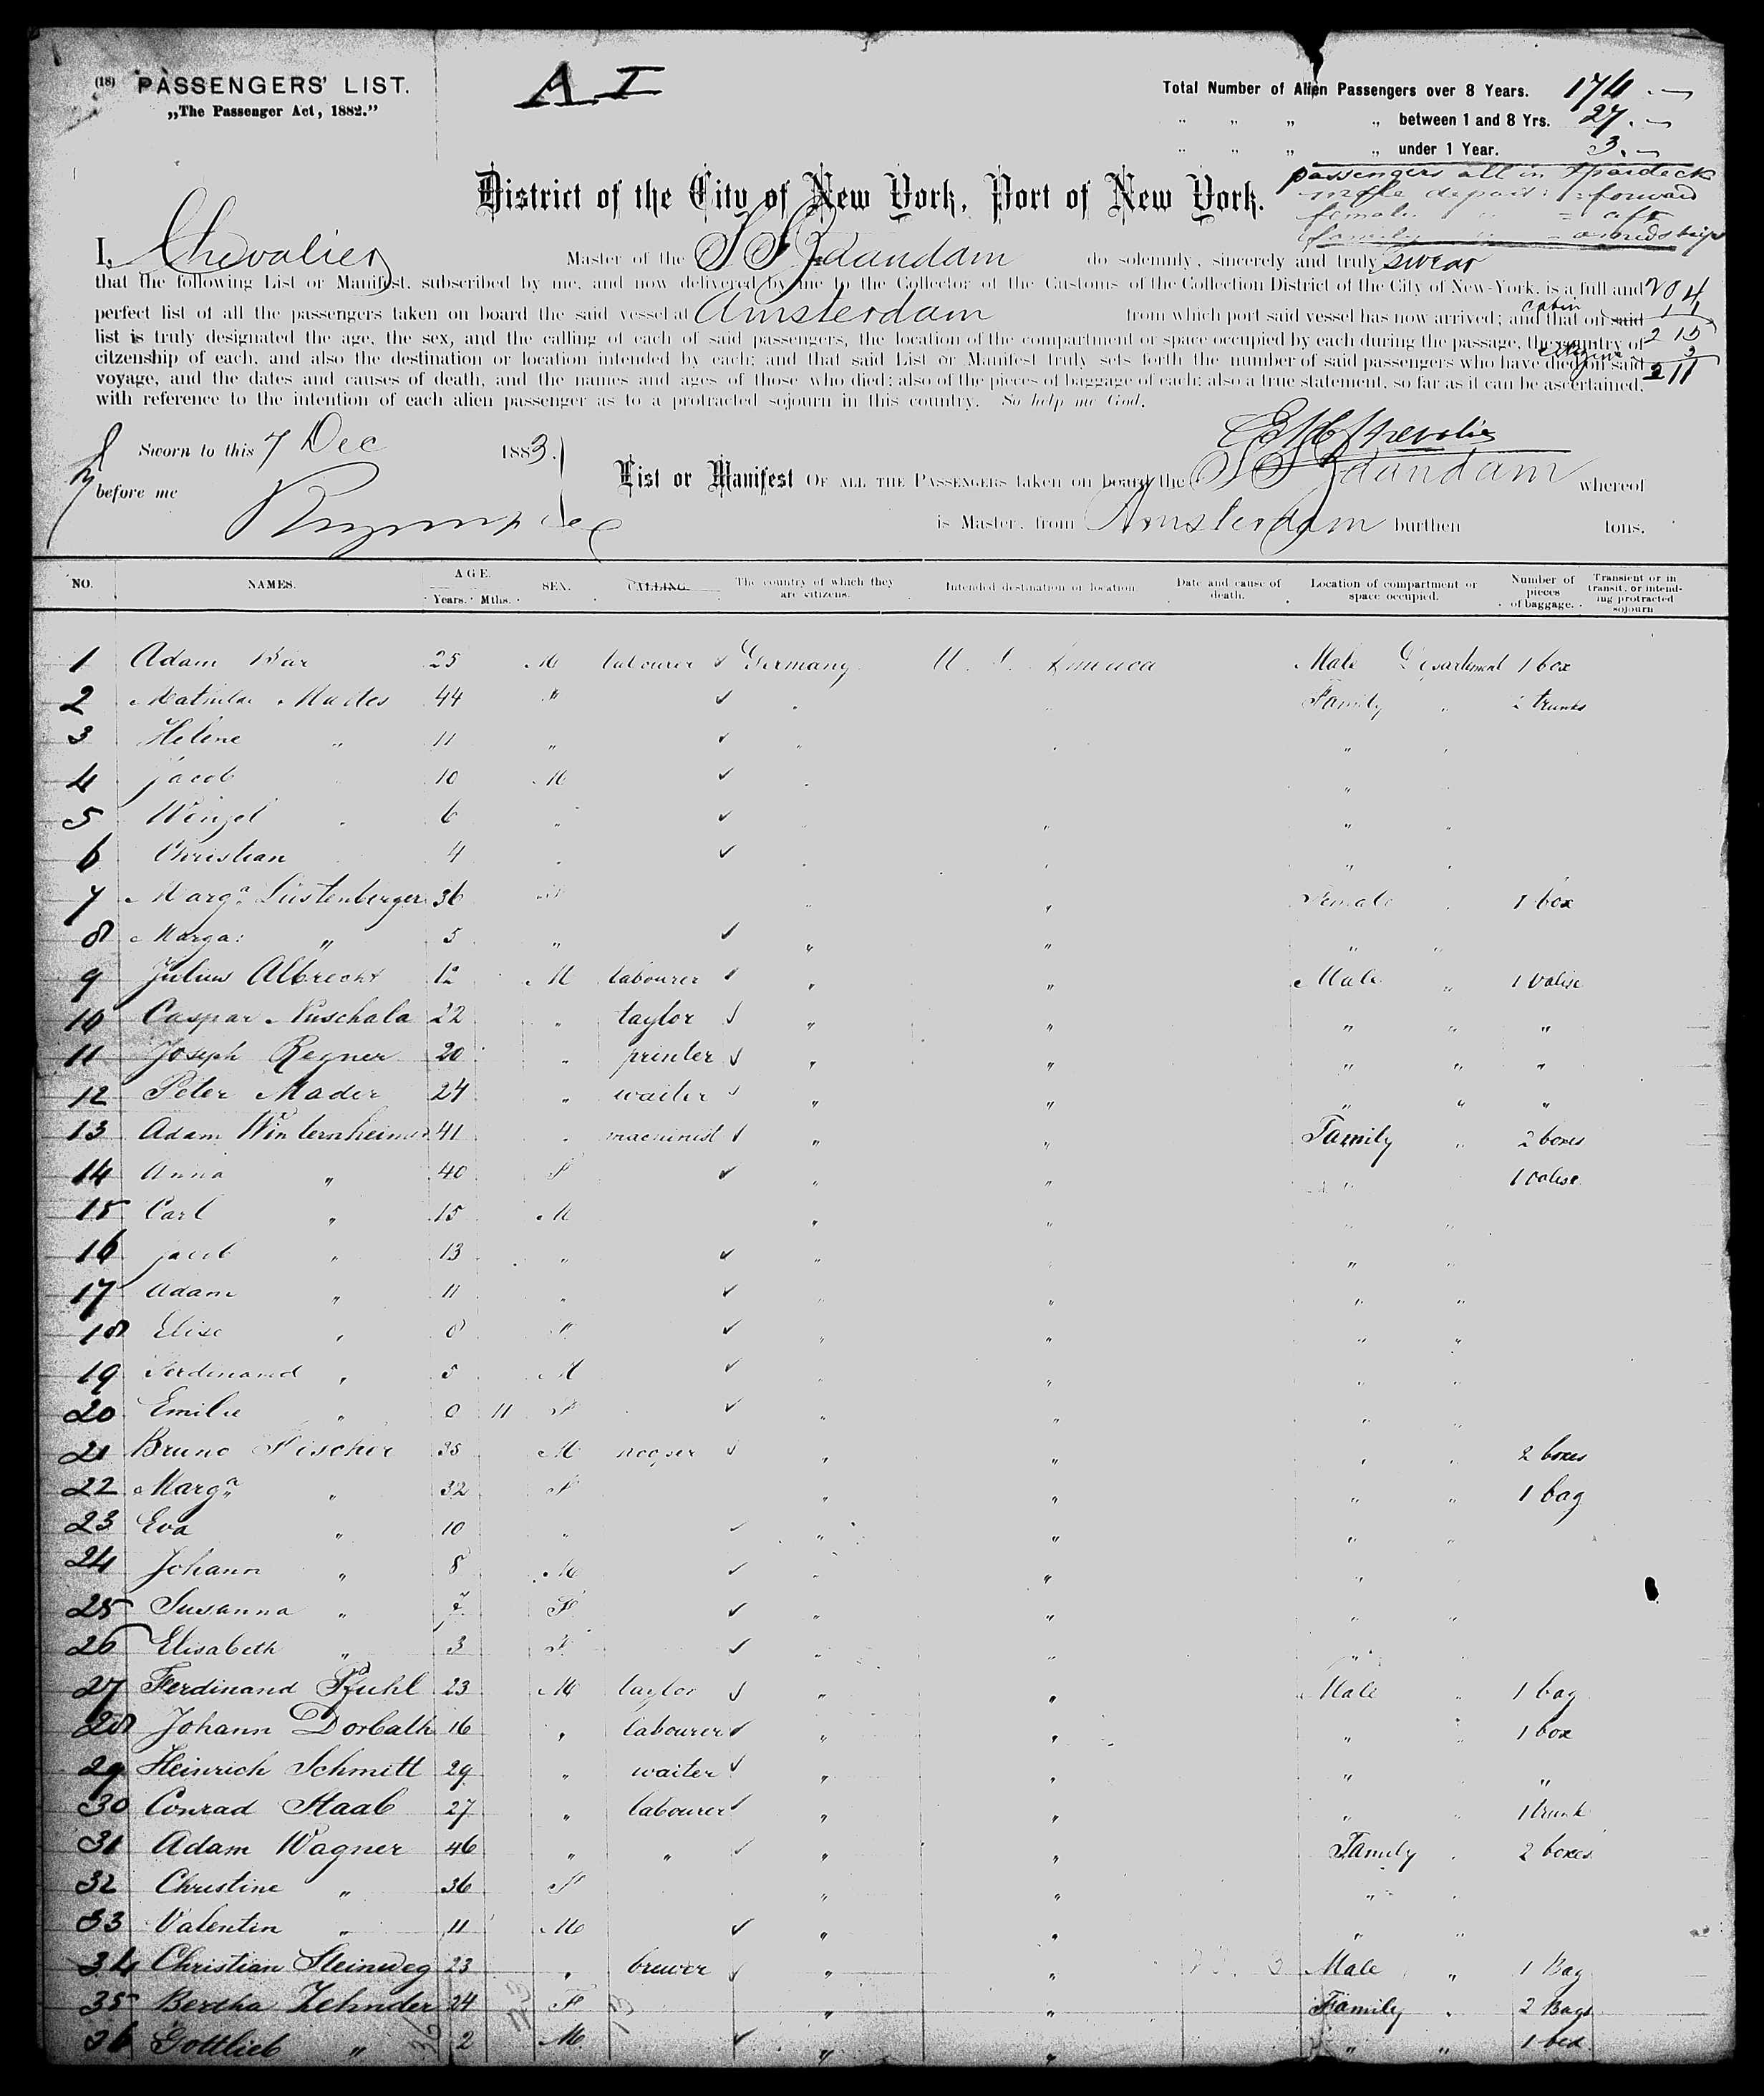 (18) PASSENGERS' LIST.
„The Passenger Act, 1882."
A I
Total Number of Alien Passengers over 8 Years. 174. —
„ „ „ „ between 1 and 8 Yrs. 27. —
„ „ „ „ under 1 Year. 3. —
passengers all in Spardeck
male depart: = forward
female „ = aft
family „ = amidships
District of the City of New York, Port of New York.
I, Chevalier Master of the SS Zaandam do solemnly, sincerely and truly swear
that the following List or Manifest, subscribed by me, and now delivered by me to the Collector of the Customs of the Collection District of the City of New-York, is a full and 204
perfect list of all the passengers taken on board the said vessel at Amsterdam from which port said vessel has now arrived; and that on said cabin 11
list is truly designated the age, the sex, and the calling of each of said passengers, the location of the compartment or space occupied by each during the passage, the country of 215
citzenship of each, and also the destination or location intended by each; and that said List or Manifest truly sets forth the number of said passengers who have died on said
voyage, and the dates and causes of death, and the names and ages of those who died; also of the pieces of baggage of each; also a true statement, so far as it can be ascertained, 211
with reference to the intention of each alien passenger as to a protracted sojourn in this country. So help me God.
Sworn to this 7 Dec 1883.
before me
List or Manifest OF ALL THE PASSENGERS taken on board the SS Zaandam whereof
is Master, from Amsterdam burthen tons.
NO. NAMES. AGE. Years. Mths. SEX. CALLING. The country of which they are citizens. Intended destination or location Date and cause of death. Location of compartment or space occupied. Number of pieces of baggage. Transient or in transit, or intending protracted sojourn
1 Adam Bär 25 M labourer Germany U. S. America Male Department 1 box
2 Mathilde Mades 44 " " " Family " 2 trunks
3 Helene " 11 " " " " "
4 Jacob 10 M " "
5 Wenzel " 6 " " " " "
6 Christian 4 " " " "
7 Marga Lustenberger 36 F " " Female " 1 box
8 Marga: " 5 " " " " "
9 Julius Albrecht 12 M labourer " " Male " 1 valise
10 Caspar Nuschala 22 " taylor " " " " "
11 Joseph Regner 20 " printer " " " " "
12 Peter Mader 24 " waiter " " " " "
13 Adam Winternheimer 41 " machinist " " Family " 2 boxes
14 Anna " 40 F " " " 1 valise
15 Carl " 15 M " " " "
16 Jacob " 13 " " " " "
17 Adam " 11 " " " " "
18 Elise " 8 F " " " "
19 Ferdinand " 5 M " " "
20 Emilie " 0 11 F " " " "
21 Bruno Fischer 35 M " " " 2 boxes
22 Marga " 32 F " " " " 1 bag
23 Eva " 10 " " " " "
24 Johann " 8 M " " "
25 Susanna " 7 F " " " "
26 Elisabeth " 3 F " " "
27 Ferdinand Pfuhl 23 M taylor " " Male " 1 bag
28 Johann Dorbath 16 " labourer " " " " 1 box
29 Heinrich Schmitt 29 " waiter " " " "
30 Conrad Staab 27 " labourer " " " " 1 trunk
31 Adam Wagner 46 " " " " Family " 2 boxes
32 Christine " 36 F " " " "
33 Valentin " 11 M " " " "
34 Christian Steinweg 23 " brewer " " Male " 1 Bag
35 Bertha Zehnder 24 F " " Family " 2 Bags
36 Gottlieb " 2 M " " " " 1 bed